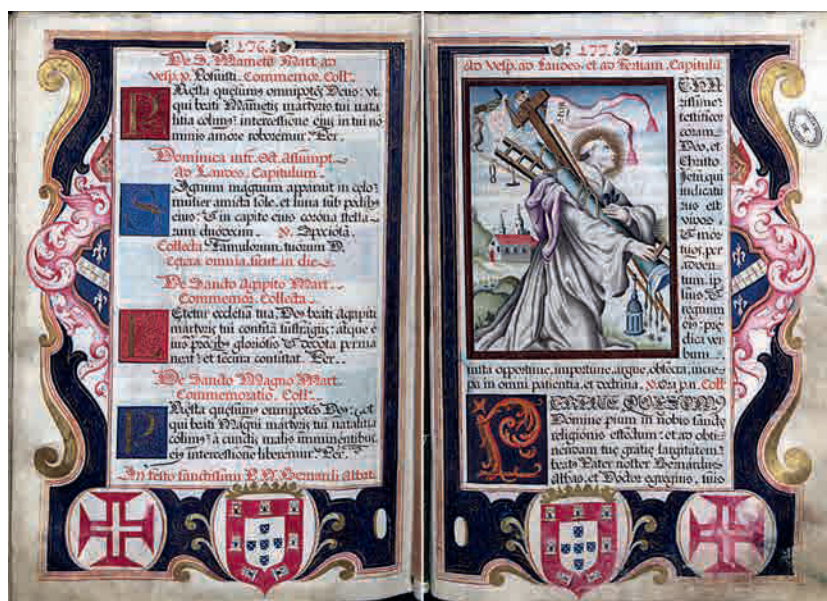 276.
De S. Mameto Mart. ad
Vesp. p. Commemor. Coll.
Præsta quesumus omnipotens Deus: ut
qui beati Mametis martyris tui nata
litia colimus: intercessione eius in tui no
minis amore roboremur. Per.
Dominica infr. Oct. Assumpt.
ad Laudes, Capitulum.
Signum magnum apparuit in celo
mulier amicta sole, et luna sub pedibus
eius: et in capite eius corona stella
rum duodecim. Speciosa.
Collecta. Famulorum tuorum D.
Cetera omnia sicut in die.
De Sancto Agapito Mart.
Commemor. Collecta.
Letetur ecclesia tua Deus beati Agapiti
martyris tui suffragijs: atque e
ius precibus gloriosis et devota perma
neat: et secura consistat. Per.
De Sancto Magno Mart.
Commemoratio. Coll.
Præsta quesumus omnipotens Deus: ut
qui beati Magni martyris tui natalitia
colimus: a cunctis malis imminentibus
eius intercessione liberemur. Per.
In festo sanctissimi P. N. Bernardi Abbat.
277.
ad Vesp. ad Laudes, et ad Tertiam. Capitulu
rissime
testificor
coram
Deo, et
Christo
Jesu, qui
iudicatu
rus est
vivos
et mor
tuos, per
adven
tum ip
sius, et
regnum
eius: pre
dica ver
bum
insta opportune, importune, argue, obsecra, incre
pa in omni patientia, et doctrina. Ora p. n. Coll.
PERFICE QUESUM9
Domine pium in nobis sancte
religionis effectum: et ad obti
nendam tue gratie largitatem
beat9 Pater noster Bernardus
Abbas, et Doctor egregius, suis